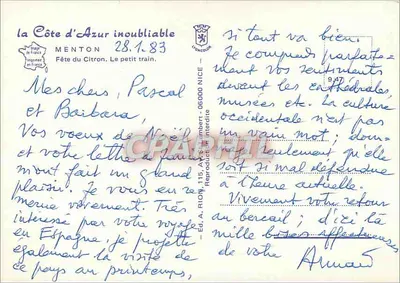 la Côte d'Azur inoubliable
MENTON 28.1.83
Fête du Citron. Le petit train.
Mes chers, Pascal
et Barbara,
Vos vœux de Noël
et votre lettre de janv.
m'ont fait un grand
plaisir. Je vous en re-
mercie vivement. Très
intéressé par votre voyage
en Espagne, je projette
également la visite de
ce pays au printemps,
06000 NICE
Reproduction interdite
si tout va bien.
Je comprends parfaite-
ment vos sentiments
devant les cathédrales,
musées etc. La culture
occidentale n'est pas
un vain mot; dom-
mage seulement qu'elle
soit si mal défendue
à l'heure actuelle.
Vivement votre retour
au bercail; d'ici là
mille bises affectueuses
de votre Armand
CPARPHIL